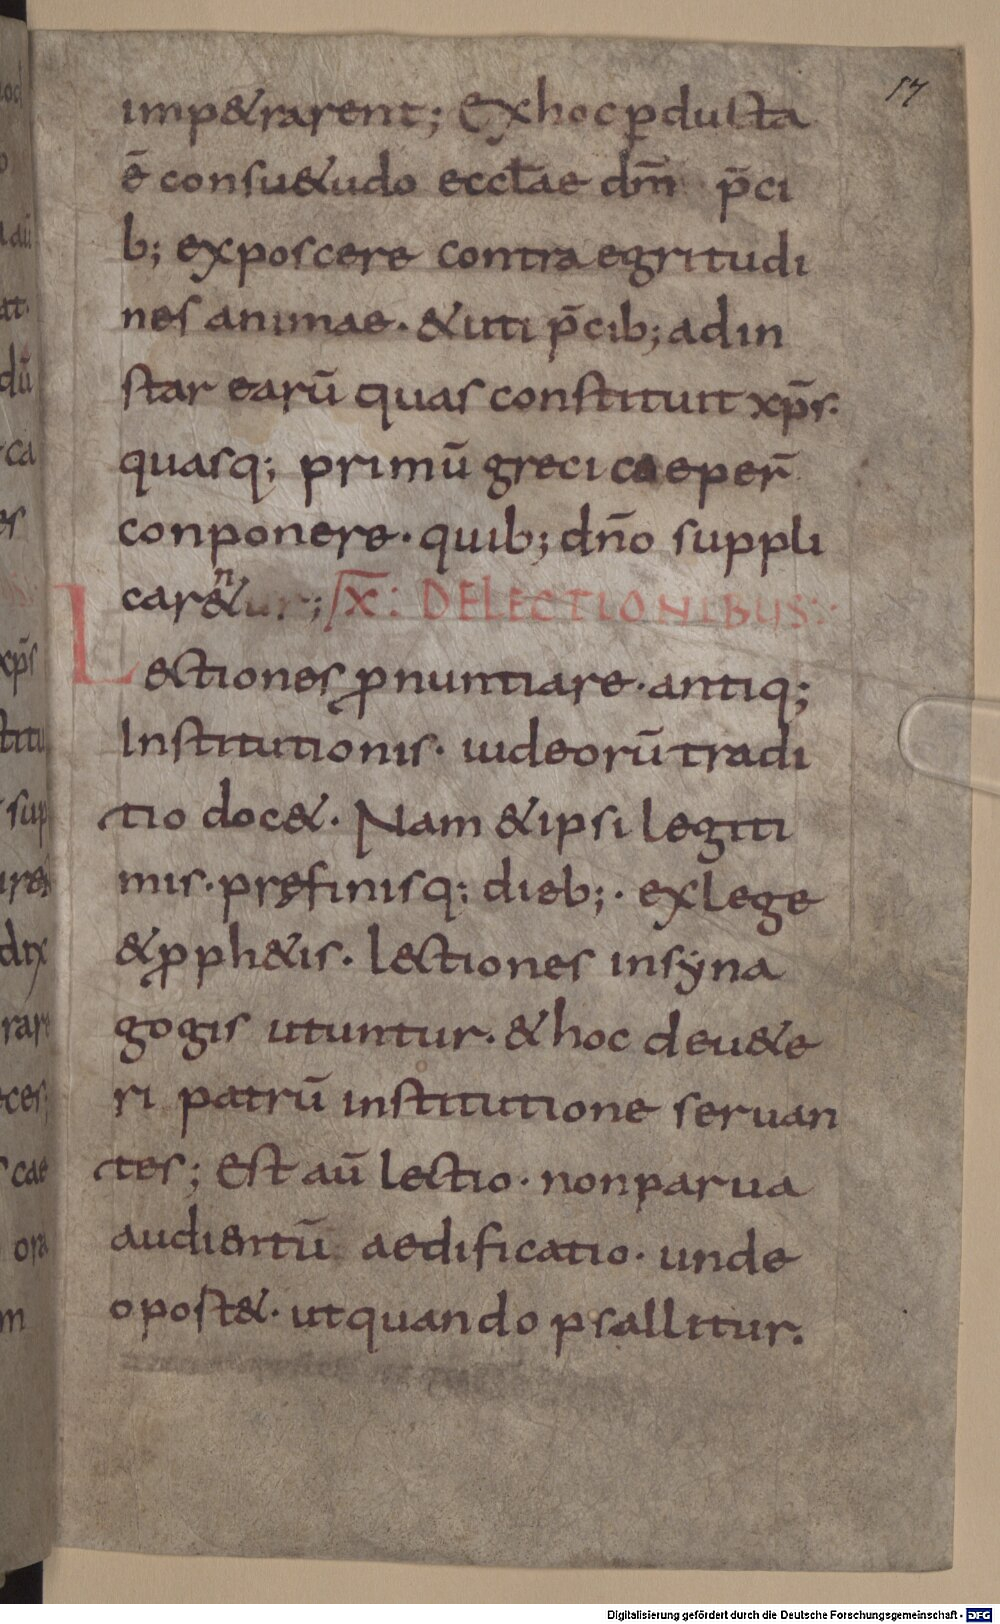 17
imp&rarent; Exhoc ꝓducta
ē consu&udo eccłae dm̄ p̄ci
b; exposcere contra egritudi
nes animae · &uti p̄cib; adin
star earū quas constituit xp̄s ·
quasq; primū greci caeper̄
conponere · quib; dn̄o suppli
car&ⁿur; IX: DELECTIONIBUS:
Lectiones ꝓnuntiare · antiq;
Institutionis · iudeorū tradi
tio doc& · Nam &ipsi legiti
mis · pręfinisq; dieb; · exlege
&ꝓph&is · lectiones insẏna
gogis utuntur · &hoc deu&e
ri patrū institutione seruan
tes; Est aū lectio · nonparua
audientū aedificatio · unde
oport& · utquando psallitur.
Digitalisierung gefördert durch die Deutsche Forschungsgemeinschaft - DFG